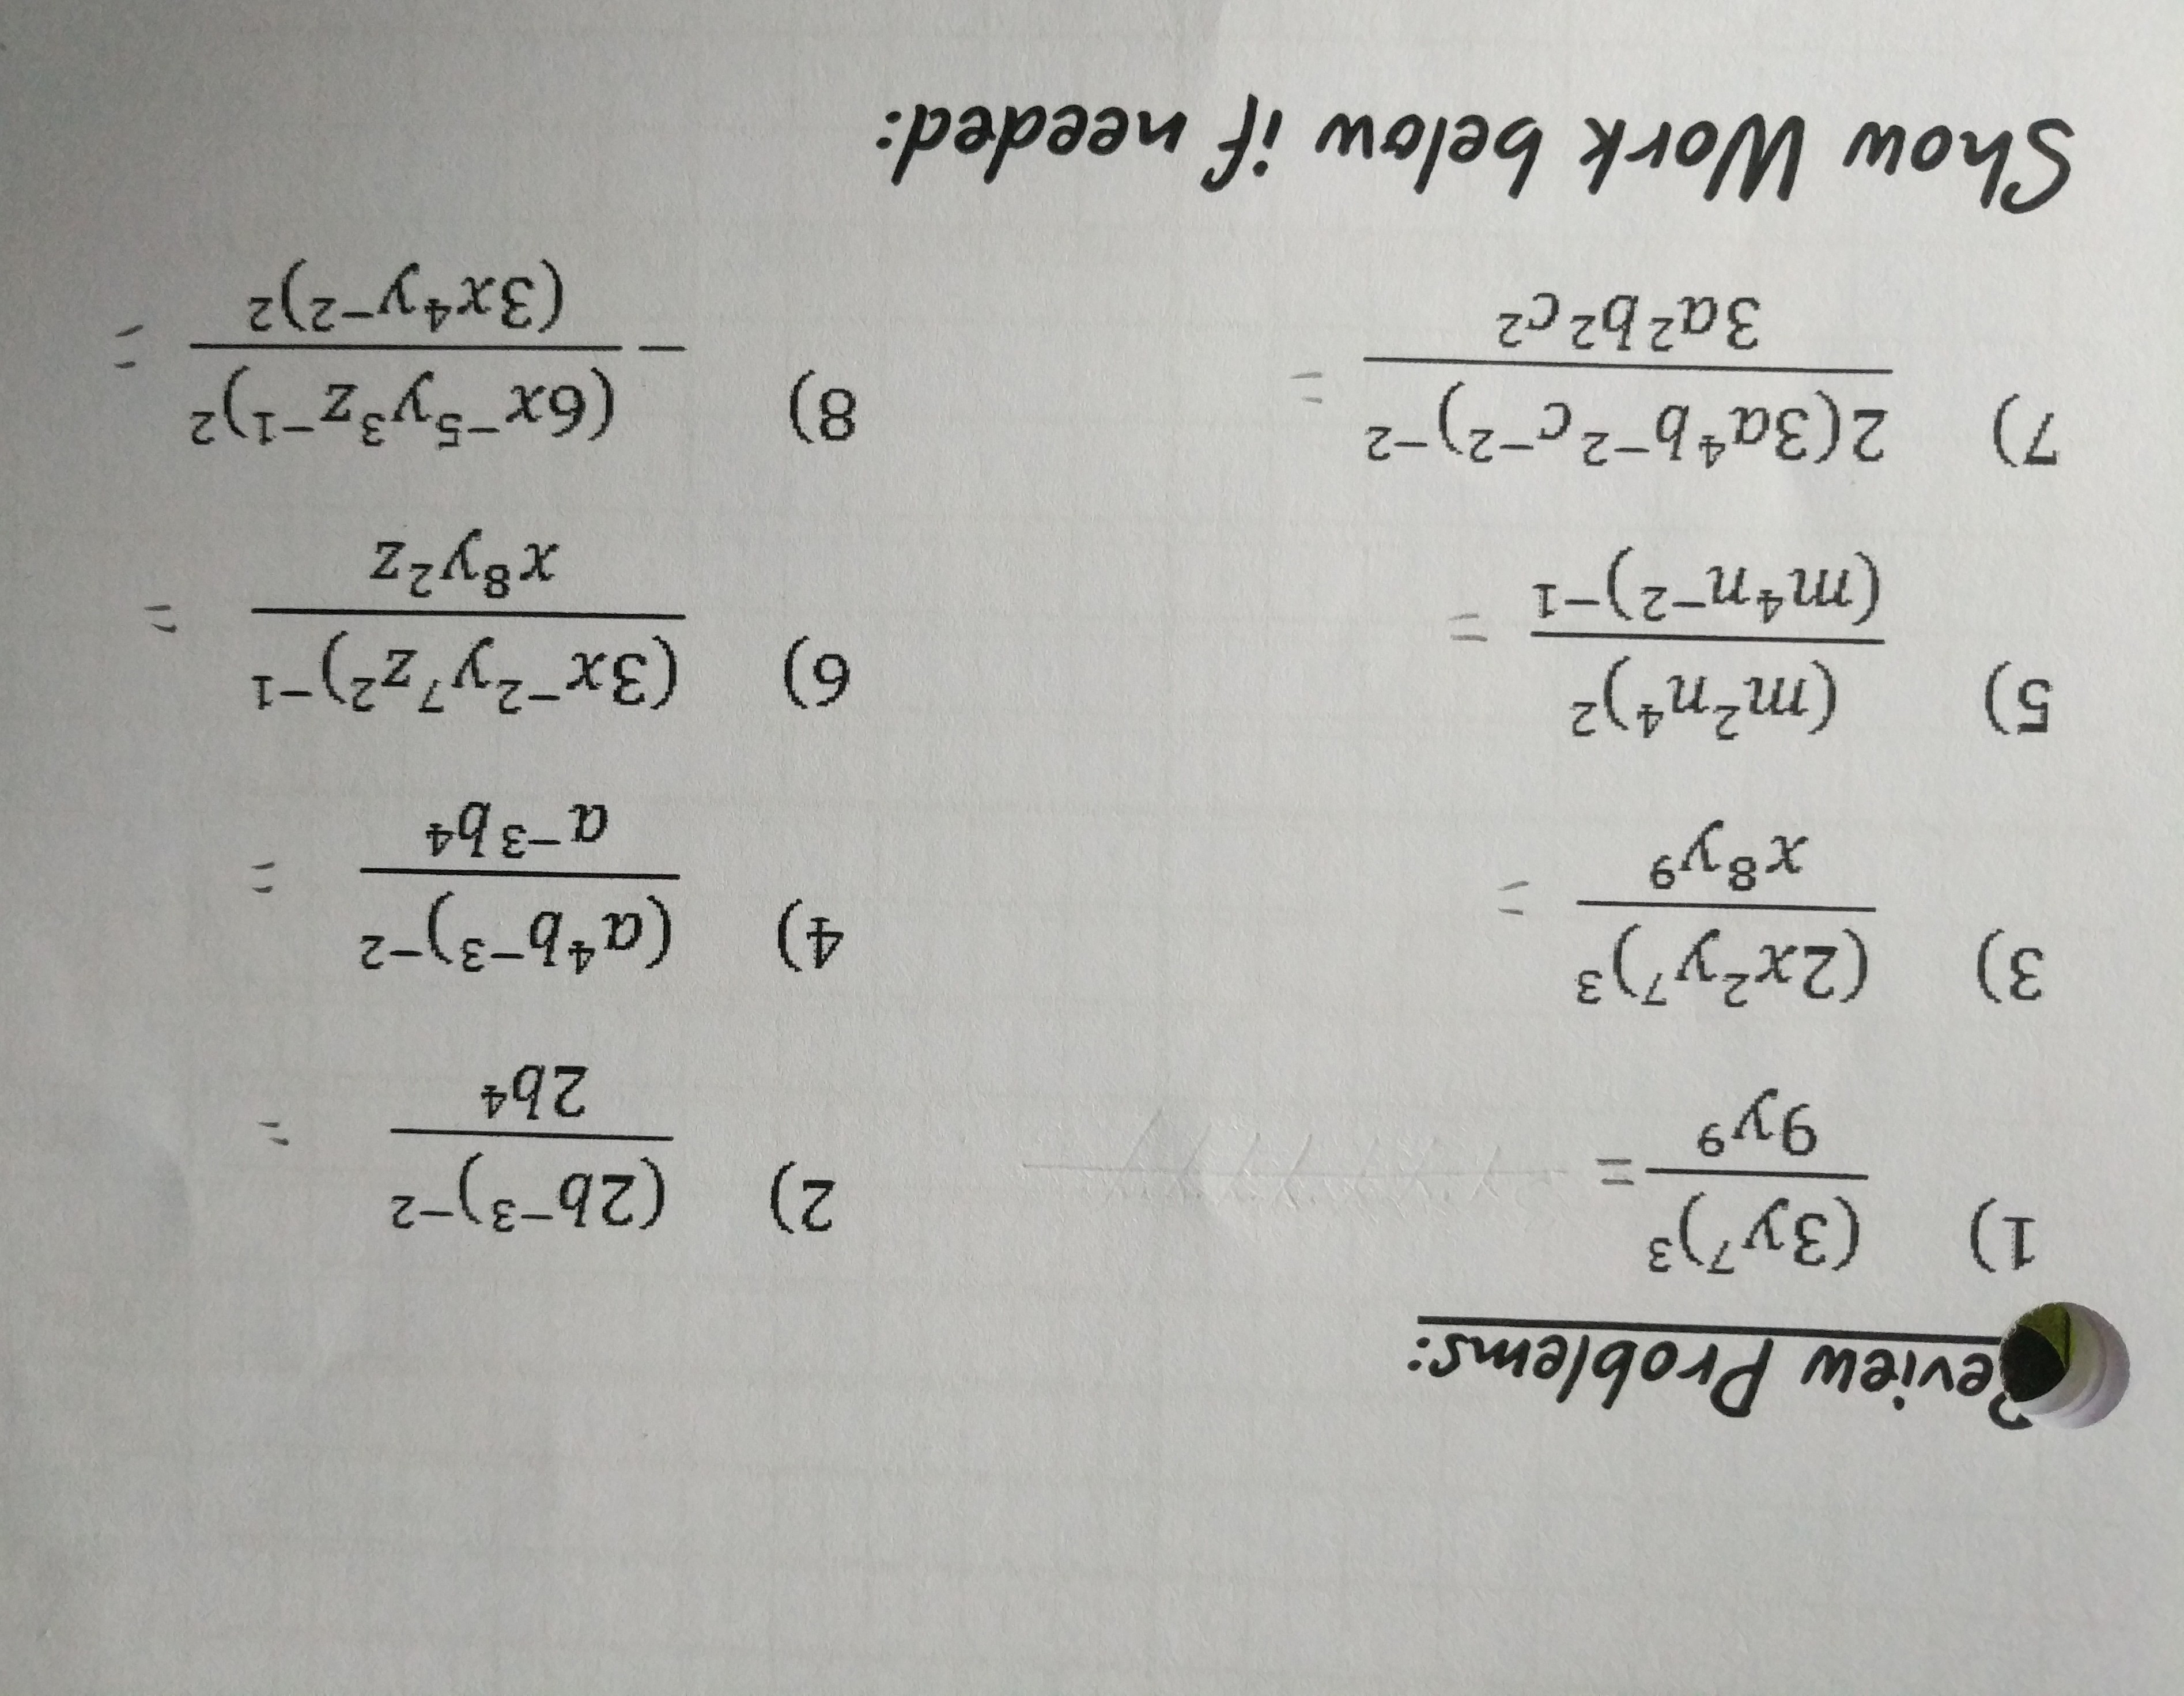 Review Problems:
1) (3y⁷)³ / 9y⁹ =
2) (2b⁻³)⁻² / 2b⁴ =
3) (2x²y⁷)³ / x⁸y⁹ =
4) (a⁴b⁻³)⁻² / a⁻³b⁴ =
5) (m²n⁴)² / (m⁴n⁻²)⁻¹ =
6) (3x⁻²y⁷z²)⁻¹ / x⁸y²z =
7) 2(3a⁴b⁻²c⁻²)⁻² / 3a²b²c² =
8) − (6x⁻⁵y³z⁻¹)² / (3x⁴y⁻²)² =
Show Work below if needed: